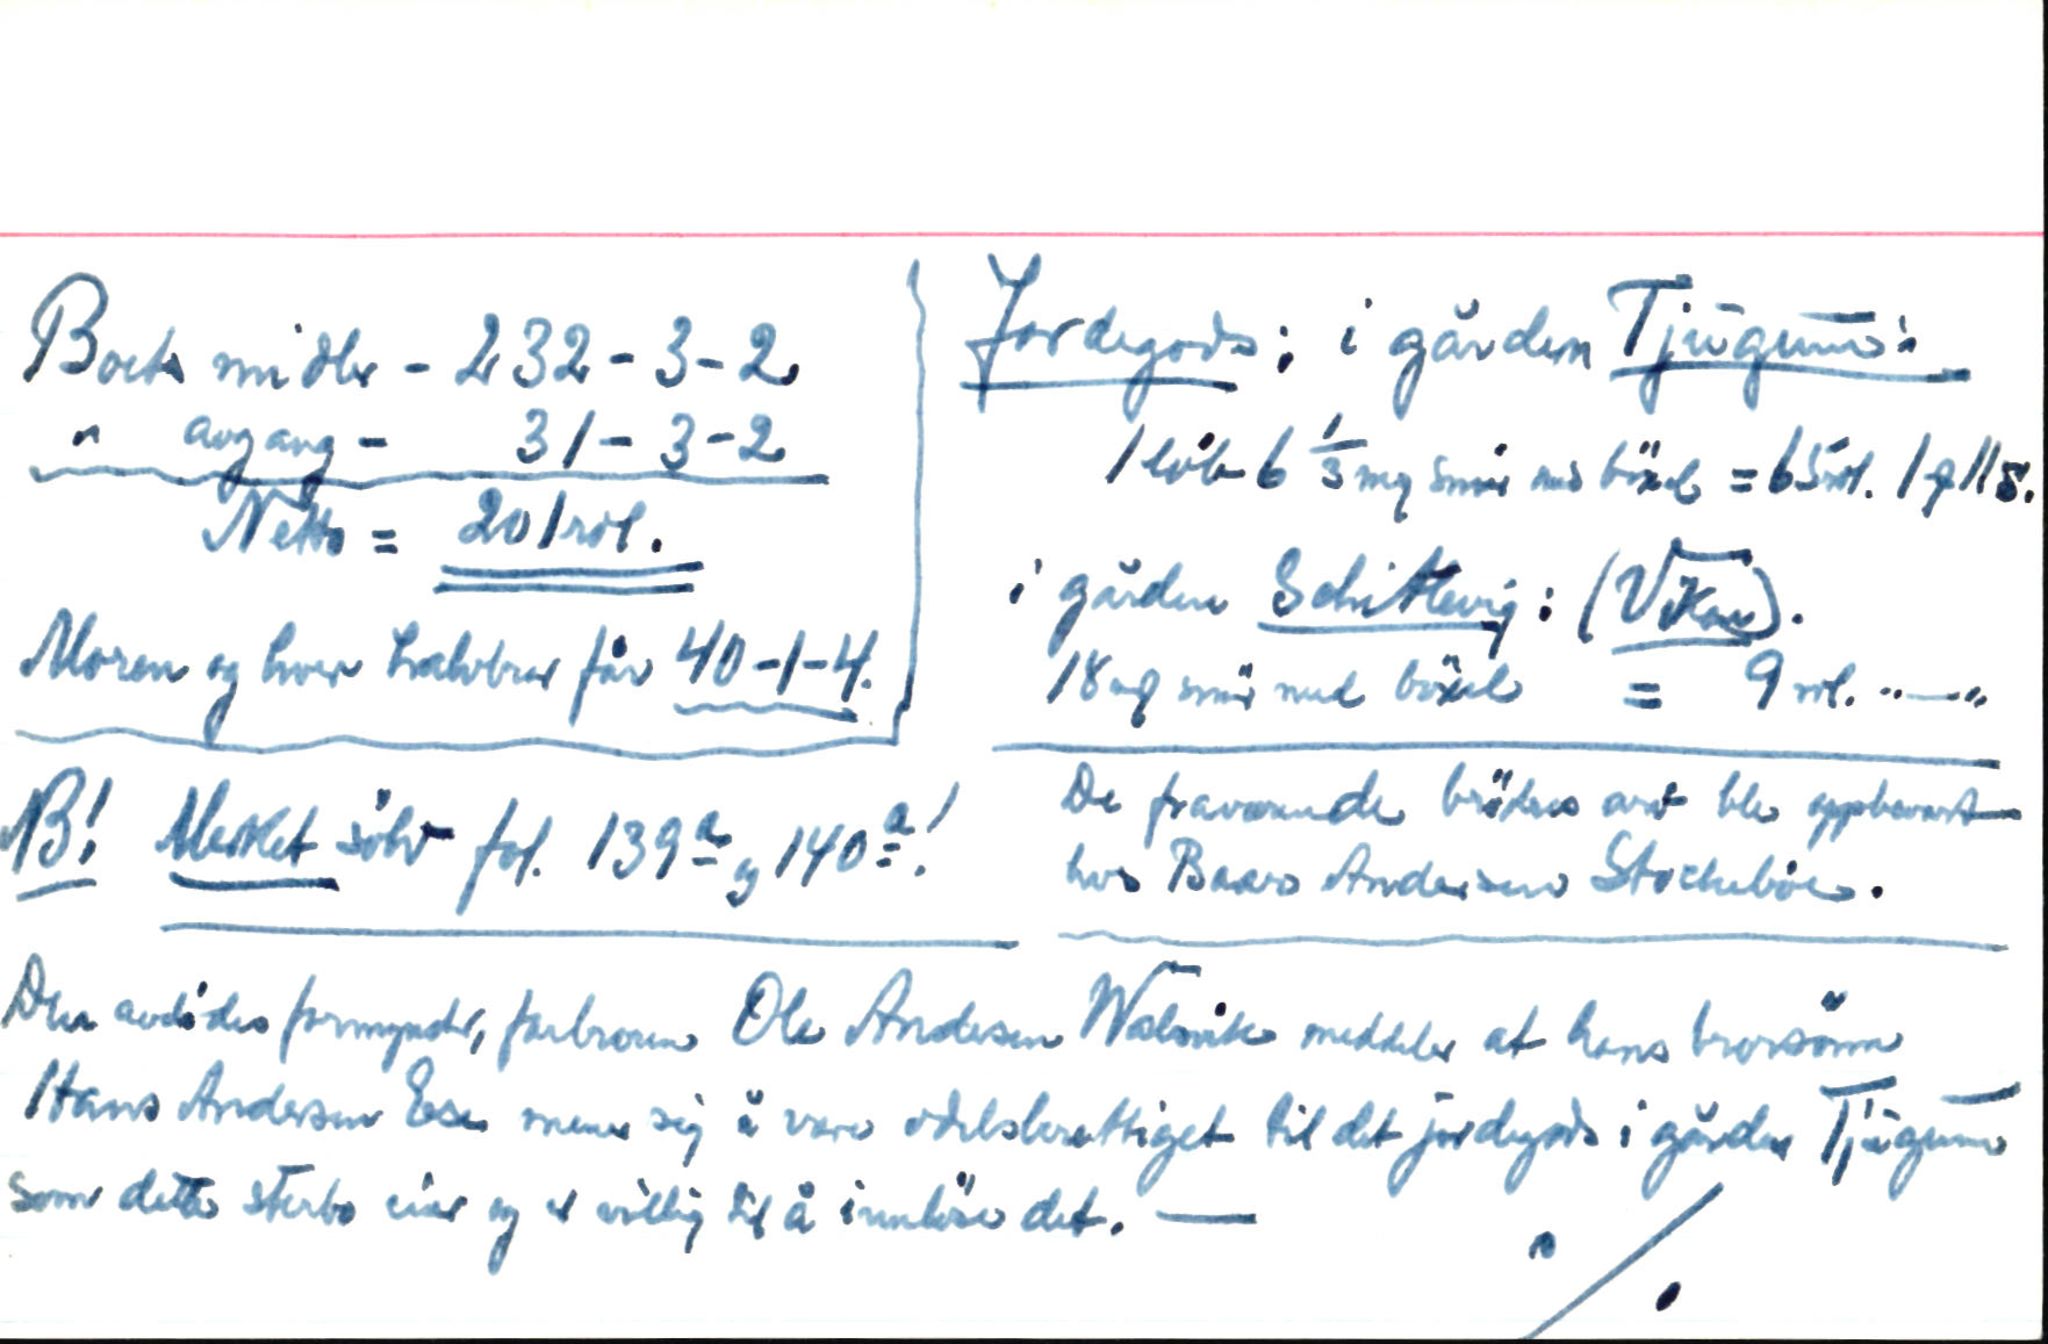 Boets midler - 232 - 3 - 2
" avgang - 31 - 3 - 2
Netto = 201 rdl.
Moren og hver halvbror får 40 - 1 - 4.
Jordegods: i gården Tjugum:
1 löb 6 1/3 mg smör med böxel = 65 rdl. 1 q 11 s.
i gården Schittevig: (Vikan).
18 mg smör med böxel = 9 rdl. "—"
NB! Merket sölv fol. 139a og 140a!
De fraværende brödres arv ble oppbevart
hos Baard Andersen Stocheböe.
Den avdödes formynder, farbroren Ole Andersen Walvik meddeler at hans brorsönn
Hans Andersen Ese mener sig å være odelsberettiget til det jordegods i gården Tjugum
som dette sterbo eier og er villig til å innlöse det. —